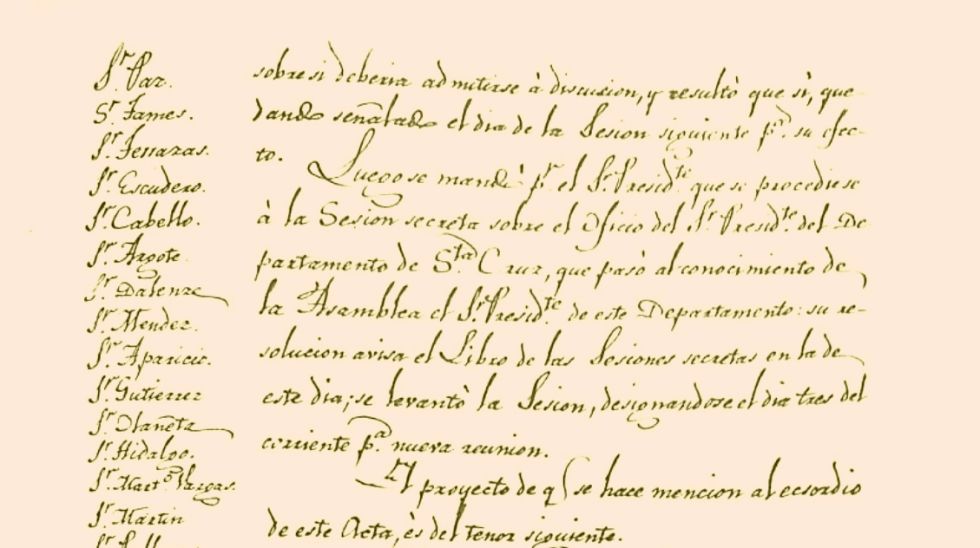 Sr. Paz.
Sr. James.
Sr. Terrazas.
Sr. Escudero.
Sr. Cabello.
Sr. Argote
Sr. Dalenze
Sr. Mendez.
Sr. Aparicio.
Sr. Gutierrez
Sr. Olañeta
Sr. Hidalgo.
Sr. Mart.s Vargas.
Sr. Martin
sobre si deberia admitirse à discusion, y resultò que sì, que-
dando señalado el dia de la Sesion siguiente p.a su efec-
to. Luego se mandò p.r el Sr. Presid.te que se procediese
à la Sesion secreta sobre el Oficio del Sr. Presid.te del De-
partamento de S.ta Cruz, que pasò al conocimiento de
la Asamblea el Sr. Presid.te de este Departamento: su re-
solucion avisa el Libro de las Sesiones secretas en la de
este dia; se levantò la Sesion, designandose el dia tres del
corriente p.a nueva reunion.
El proyecto de q.e se hace mencion al ecsordio
de este Acta, ès del tenor siguiente.